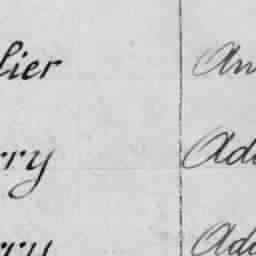 lier An
rry Ada
rry Ada